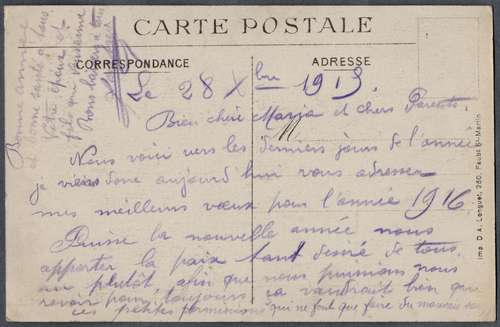 CARTE POSTALE
CORRESPONDANCE
ADRESSE
Le 28 Xbre 1915
Bien chère Maria et chers Parents
Nous voici vers les derniers jours de l'année
je viens donc aujourd'hui vous adresser
mes meilleurs vœux pour l'année 1916
Puisse la nouvelle année nous
apporter la paix tant désiré de tous
au plutôt, afin que nous puissions nous
revoir pour toujours ça vaudrait bien que
ces petites permissions qui ne font que faire du mauvais
Bonne année
et bonne santé à tous
Votre époux et
fils qui vous aime
Bons baisers à tous
Imp. D. A. Longuet, 250, Faub. St-Martin